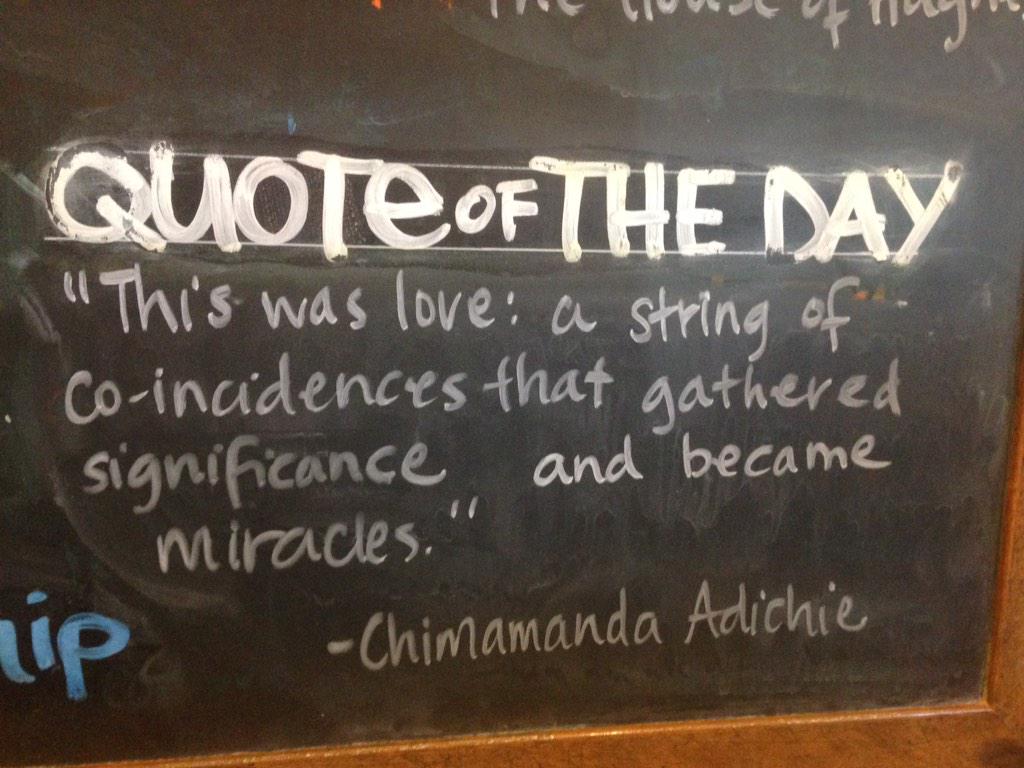 The House of
QUOTE OF THE DAY
"This was love: a string of
co-incidences that gathered
significance and became
miracles."
-Chimamanda Adichie